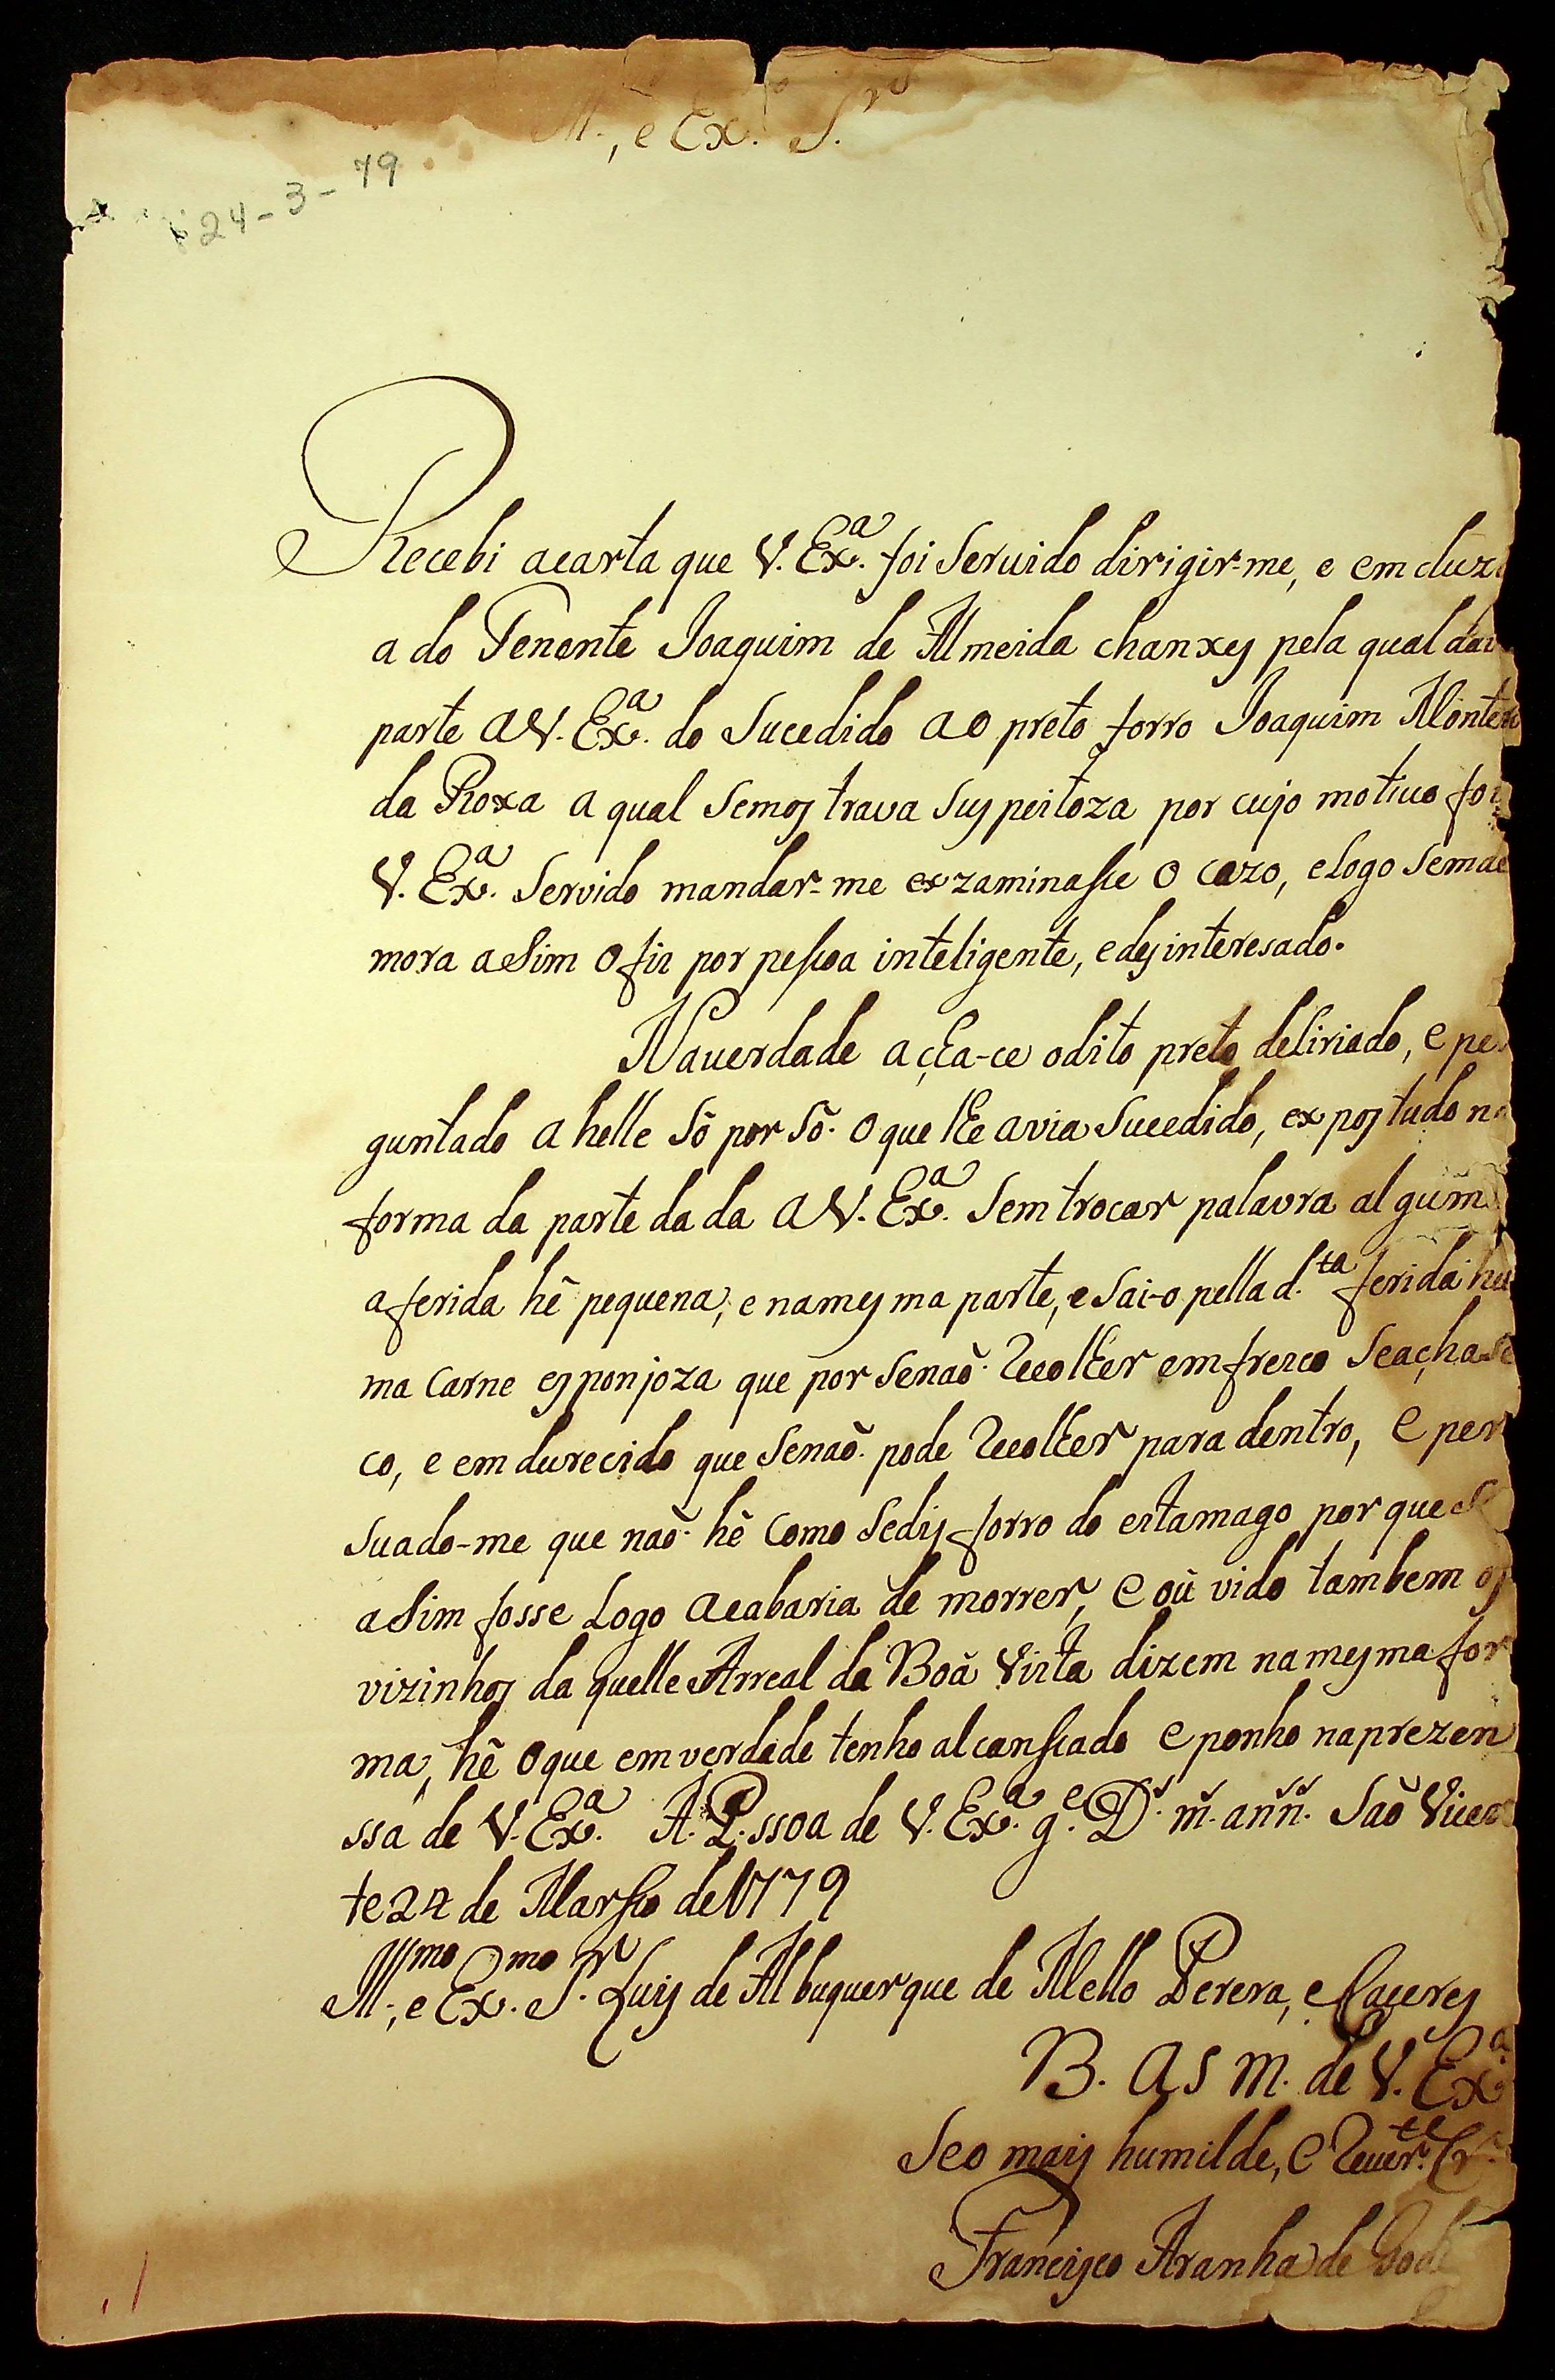 M., e Ex. S.ro
24-3-79
Recebi acarta que V. Ex.a foi Seruido dirigir-me, e em cluz
a do Tenente Joaquim de Almeida chanxes pela qual dav
parte a V. Ex.a do Sucedido ao preto forro Joaquim Monte
da Roxa a qual Semostrava Suspeitoza por cujo motiuo foi
V. Ex.a Servido mandar-me exzaminasse o cazo, elogo Semde
mora asim o fis por pessoa inteligente, edesinteresado.
Nauerdade açha-ce odito preto deliriado, e per
guntado a helle Sô por Sô. o que lhe avia Sucedido, expos tudo na
forma da parte da da a V. Ex.a Sem trocar palavra algum
aferida hê pequena, e namesma parte, e Sai-o pella d.ta ferida hu
ma Carne esponjoza que por Senaõ. Recolher emfresco Seaçha Se
co, e em durecido que Senaõ. pode Recolher para dentro, e per
Suado-me que naõ. hê Como Sedis forro do estamago por que Se
aSim fosse Logo acabaria de morrer, e oũ vido tambem os
vizinhos da quelle Arreal da Boã Vista dizem na mesma for
ma, hê o que emverdade tenho alcansado e ponho naprezen
ssa de V. Ex.a A. P.ssoa de V. Ex.a g.e D.s m. ann. Saõ Vicen
te 24 de Marsso de 1779
Ill.mo, e Ex.mo S.r Luis de Albuquerque de Mello Perera, e Caceres
B. as m. de V. Ex.a
Seo mais humilde, e Reuer.te Cr.
Francisco Aranha de Godi